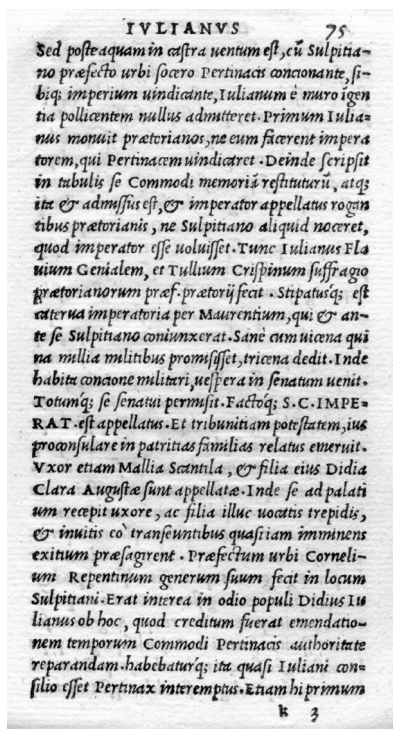 IVLIANVS 75
Sed posteaquam in castra uentum est, cũ Sulpitia-
no præfecto urbi socero Pertinacis concionante, si-
biq; imperium uindicante, Iulianum è muro ĩgen
tia pollicentem nullus admitteret. Primum Iulia-
nus monuit prætorianos, ne eum facerent impera
torem, qui Pertinacem uindicaret. Deinde scripsit
in tabulis se Commodi memoriã restituturũ, atq;
ita & admissus est, & imperator appellatus rogan
tibus prætorianis, ne Sulpitiano aliquid noceret,
quod imperator esse uoluisset. Tunc Iulianus Fla
uium Genialem, et Tullium Crispinum suffragio
prætorianorum præf. prætorij fecit. Stipatusq́; est
caterua imperatoria per Maurentium, qui & an-
te se Sulpitiano coniunxerat. Sanè cum uicena qui
na millia militibus promisisset, tricena dedit. Inde
habita concione militari, uespera in senatum uenit.
Totumq́; se senatui permisit. Factoq́; S. C. IMPE=
RAT. est appellatus. Et tribunitiam potestatem, ius
proconsulare in patritias familias relatus emeruit.
Vxor etiam Mallia Scantila, & filia eius Didia
Clara Augustæ sunt appellatæ. Inde se ad palati
um recepit uxore, ac filia illuc uocatis trepidis,
& inuitis eò transeuntibus quasi iam imminens
exitium præsagirent. Præfectum urbi Corneli-
um Repentinum generum suum fecit in locum
Sulpitiani. Erat interea in odio populi Didius Iu
lianus ob hoc, quod creditum fuerat emendatio-
nem temporum Commodi Pertinacis authoritate
reparandam. habebaturq́; ita quasi Iuliani con=
silio esset Pertinax interemptus. Etiam hi primum
k 3